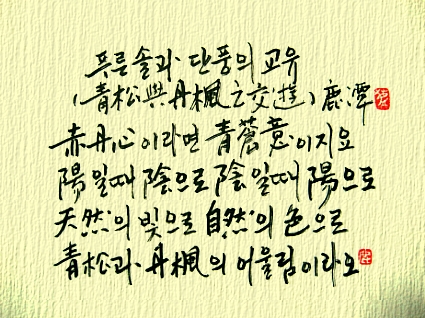 푸른솔과 단풍의 교유
(青松與丹楓之交遊) 鹿潭
赤丹心이라면 青蒼意이지요
陽일때 陰으로 陰일때 陽으로
天然의 빛으로 自然의 色으로
青松과 丹楓의 어울림이라오